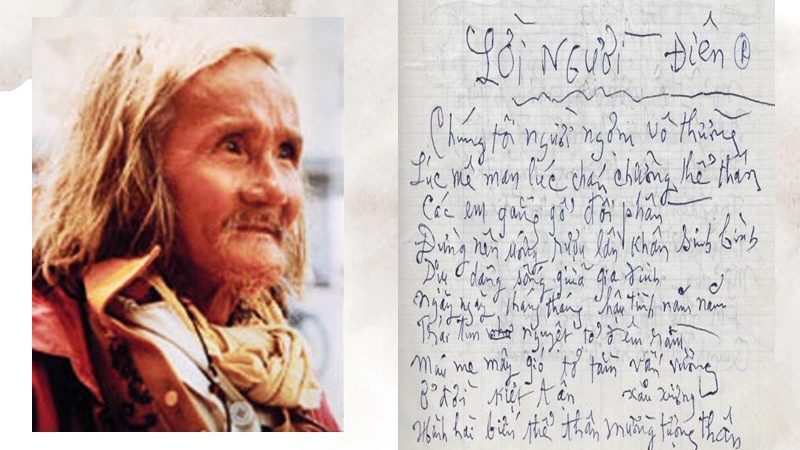 LỜI NGƯỜI ĐIÊN ®
Chúng tôi người ngợm vô thường
Lúc mê man lúc chán chường thể thân
Các em gắng gổ đôi phần
Đừng nên uống rượu lần khân bình
Dịu dàng sống giữa gia đình
Ngày ngày tháng tháng hữu tình năm năm
Trái tim nguyệt tỏ đêm rằm
Máu me mây gió tơ tằm vấn vương
Ở đời kiệt tận
Hình hài biến thể thần mường tượng thân